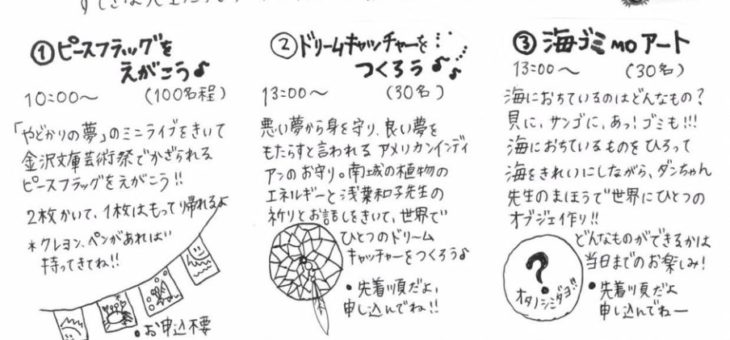 ①ピースフラッグを
えがこう♪
10:00〜 (100名程)
「やどかりの夢」のミニライブをきいて
金沢文庫芸術祭でかざられる
ピースフラッグをえがこう!!
2枚かいて、1枚はもって帰れるよ♪
*クレヨン、ペンがあれば
持ってきてね!!
•お申込不要
②ドリームキャッチャーを
つくろう♪♪
13:00〜 (30名)
悪い夢から身を守り、良い夢を
もたらすと言われる アメリカンインディ
アンのお守り。南城の植物の
エネルギーと浅葉和子先生の
祈りとお話しをきいて、世界で
ひとつのドリーム
キャッチャーをつくろう♪
•先着順だよ、
申し込んでね!!
③海ゴミMOアート
13:00〜 (30名)
海におちているのはどんなもの?
貝に、サンゴに、あっ!ゴミも!!!
海におちているものをひろって
海をきれいにしながら、ダンちゃん
先生のまほうで世界にひとつの
オブジェイ作り!!
どんなものができるかは
当日までのお楽しみ!
?
オタノシミダヨ!!
•先着順だよ
申し込んでねー